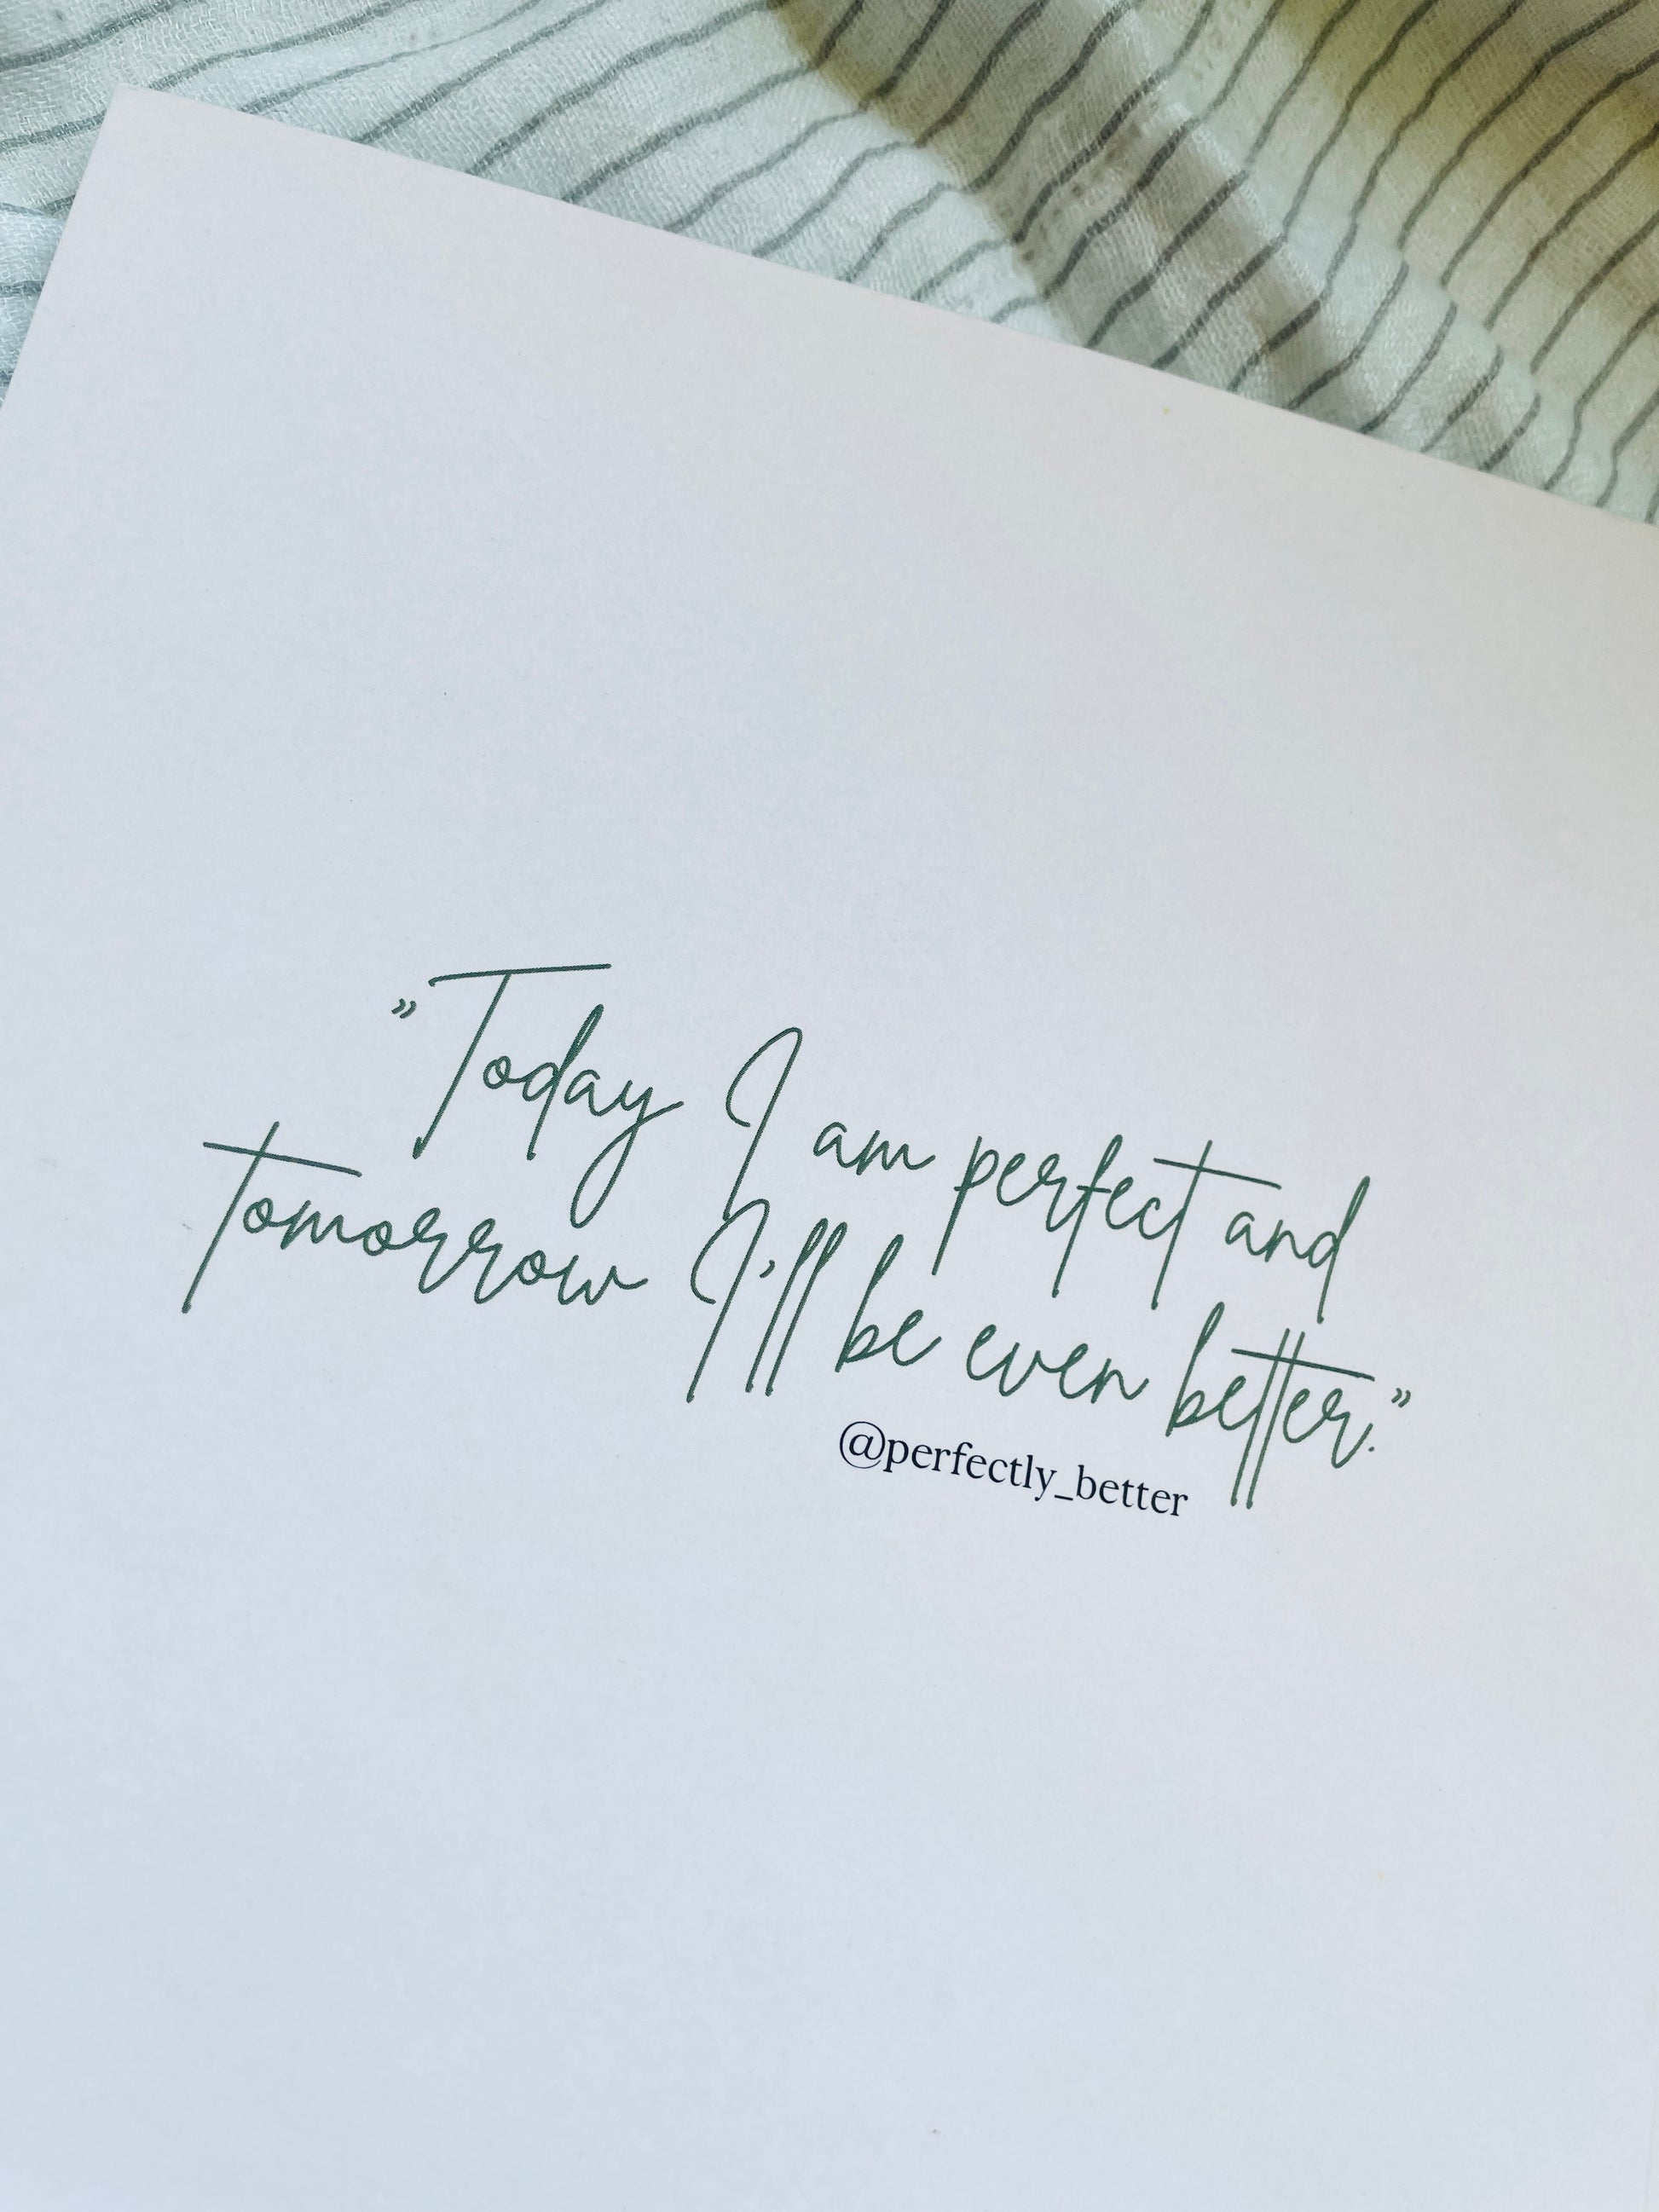 ”Today I am perfect and
tomorrow I'll be even better.”
@perfectly_better